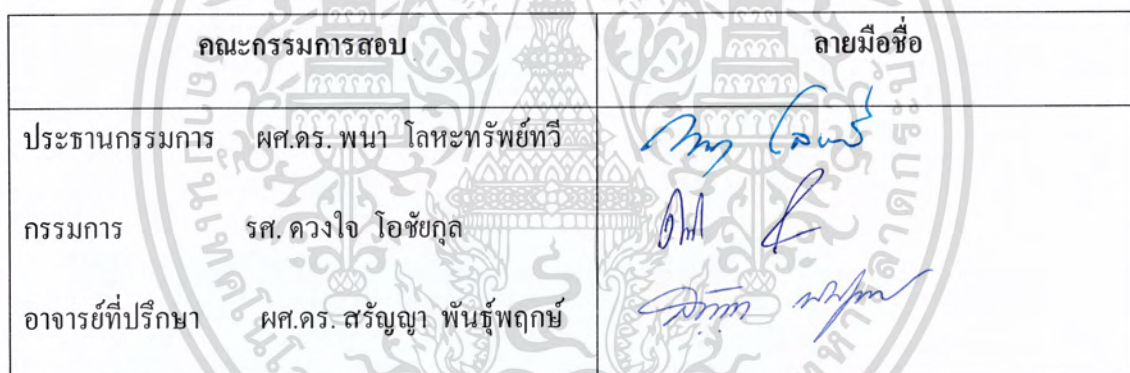 คณะกรรมการสอบ ลายมือชื่อ
ประธานกรรมการ ผศ.ดร. พนา โลหะทรัพย์ทวี
กรรมการ รศ. ดวงใจ โอชัยกุล
อาจารย์ที่ปรึกษา ผศ.ดร. สรัญญา พันธุ์พฤกษ์